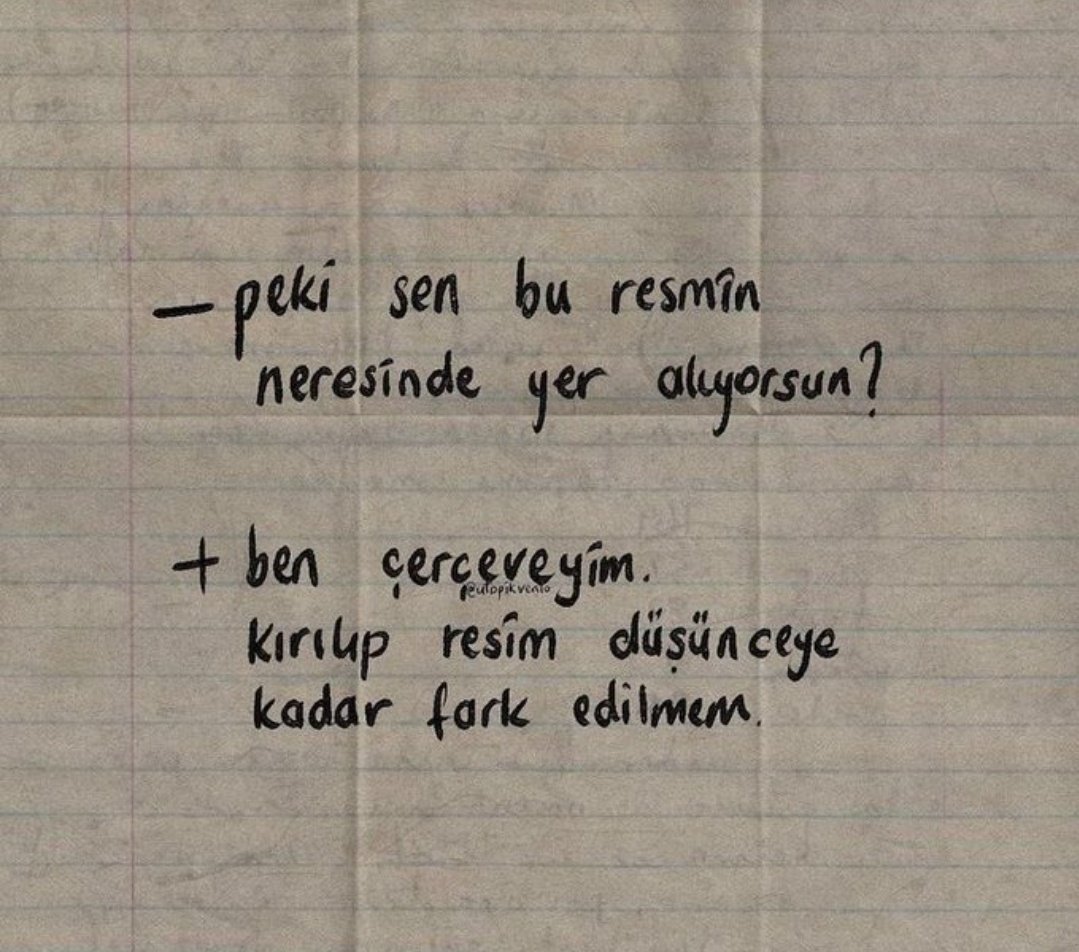 — peki sen bu resmin
neresinde yer alıyorsun?
+ ben çerçeveyim.
@utopikvenio
kırılıp resim düşünceye
kadar fark edilmem.